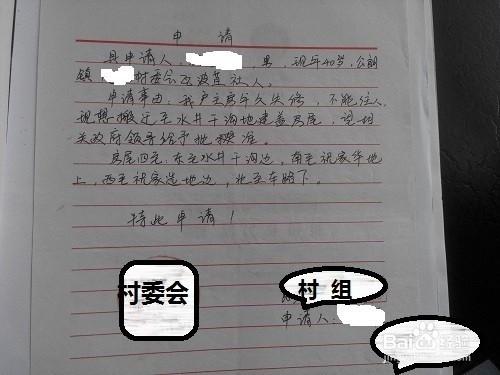 申 请
具申请人:  男,现年40岁,公郎
镇 村委会瓦波莲社人。
申请事由:我户主房年久失修,不能住人,
现想搬迁至水井干沟地建盖房屋,望相
关政府领导给予批准。
房屋四至:东至水井干沟边,南至祝家华地
上,西至祝家选地边,北至车路下。
特此申请!
村委会
村 组
申请人:
Bai 经验